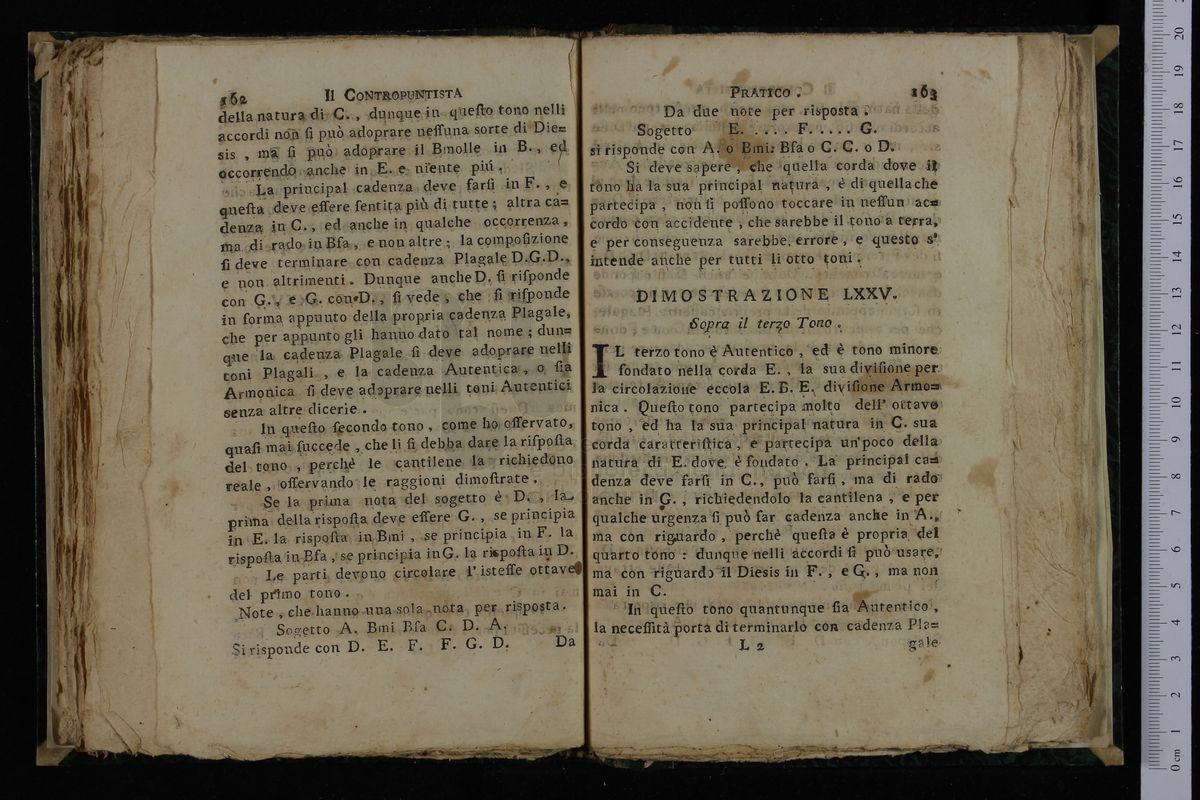 162 Il CONTROPUNTISTA
della natura di C. , dunque in queſto tono nelli
accordi non ſi può adoprare neſſuna sorte di Die=
sis , ma ſi può adoprare il Bmolle in B. , ed
occorrendo anche in E. e niente più .
La principal cadenza deve farſi in F. , e
queſta deve eſſere ſentita più di tutte ; altra ca=
denza in C. , ed anche in qualche occorrenza ,
ma di rado in Bfa , e non altre ; la compoſizione
ſi deve terminare con cadenza Plagale D.G.D.,
e non altrimenti . Dunque anche D. ſi riſponde
con G. , e G. con D. , ſi vede , che ſi riſponde
in forma appunto della propria cadenza Plagale,
che per appunto gli hanno dato tal nome ; dun=
que la cadenza Plagale ſi deve adoprare nelli
toni Plagali , e la cadenza Autentica , o ſia
Armonica ſi deve adoprare nelli toni Autentici
senza altre dicerie .
In queſto ſecondo tono , come ho oſſervato,
quaſi mai ſuccede , che li ſi debba dare la riſpoſta
del tono , perchè le cantilene la richiedono
reale , oſſervando le raggioni dimoſtrate .
Se la prima nota del sogetto è D. , la
prima della riſpoſta deve eſſere G. , se principia
in E. la riſpoſta in Bmi , se principia in F. la
riſpoſta in Bfa , se principia in G. la riſpoſta in D.
Le parti devono circolare l' iſteſſe ottave
del primo tono .
Note , che hanno una sola nota per risposta.
Sogetto A. Bmi Bfa C. D. A.
Si risponde con D. E. F. F. G. D. Da
PRATICO . 163
Da due note per risposta .
Sogetto E. . . . . F. . . . . G.
si risponde con A. o Bmi: Bfa o C. C. o D.
Si deve sapere , che quella corda dove il
tono ha la sua principal natura , è di quella che
partecipa , non ſi poſſono toccare in neſſun ac=
cordo con accidente , che sarebbe il tono a terra,
e per conseguenza sarebbe errore , e questo s'
intende anche per tutti li otto toni .
DIMOSTRAZIONE LXXV.
Sopra il terzo Tono .
IL terzo tono è Autentico , ed è tono minore
fondato nella corda E. , la sua diviſione per
la circolazione eccola E. B. E. diviſione Armo=
nica . Queſto tono partecipa molto dell' ottavo
tono , ed ha la sua principal natura in C. sua
corda caratteriſtica , e partecipa un' poco della
natura di E. dove è fondato . La principal ca=
denza deve farſi in C. , può farſi , ma di rado
anche in G. , richiedendolo la cantilena , e per
qualche urgenza ſi può far cadenza anche in A.,
ma con riguardo , perchè queſta è propria del
quarto tono : dunque nelli accordi ſi può usare,
ma con riguardo il Diesis in F. , e G. , ma non
mai in C.
In queſto tono quantunque ſia Autentico ,
la neceſſità porta di terminarlo con cadenza Pla=
L 2 gale